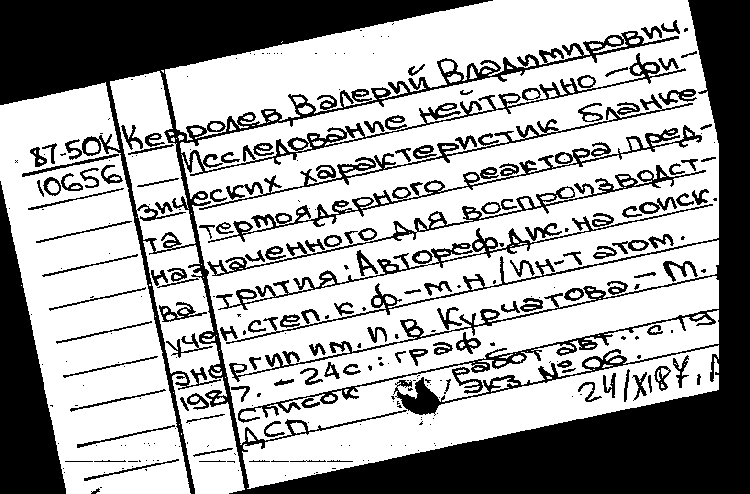 87-50К
10656
Кевролев, Валерий Владимирович.
Исследование нейтронно-фи-
зических характеристик бланке-
та термоядерного реактора, пред-
назначенного для воспроизводст-
ва трития: Автореф. дис. на соиск.
учен. степ. к. ф.-м. н. / Ин-т атом.
энергии им. И. В. Курчатова. - М.,
1987. - 24 с.: граф.
Список работ авт.: с. 19.
ДСП. Экз. № 06.
24/XI 87,